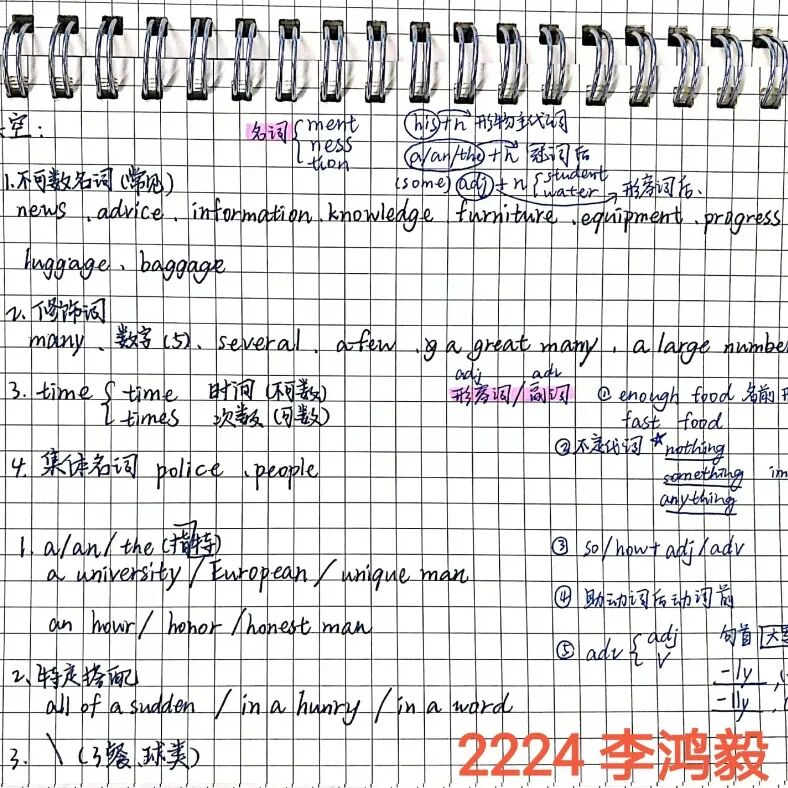 空:
名词 { ment
ness
tion
his + n 形物主代词
a/an/the + n 冠词后
(some) adj + n { student
water 形容词后、
1.不可数名词 (常见)
news 、advice 、information 、knowledge 、furniture 、equipment 、progress
luggage、baggage
2.修饰词
many 、数字(5)、several 、a few 、a great many 、a large number
3. time { time 时间 (不可数)
times 次数 (可数)
4. 集体名词 police 、people
adj adv
形容词/副词
① enough food 名前
fast food
② 不定代词 *nothing
something im
anything
③ so/how + adj/adv
④ 助动词后动词前
⑤ adv { adj
V
句首
-ly
-lly
1. a/an/the (特指)
a university / European / unique man
an hour/ honor /honest man
2、特定搭配
all of a sudden / in a hunry / in a word
3. \ (3餐、球类)
2224 李鸿毅